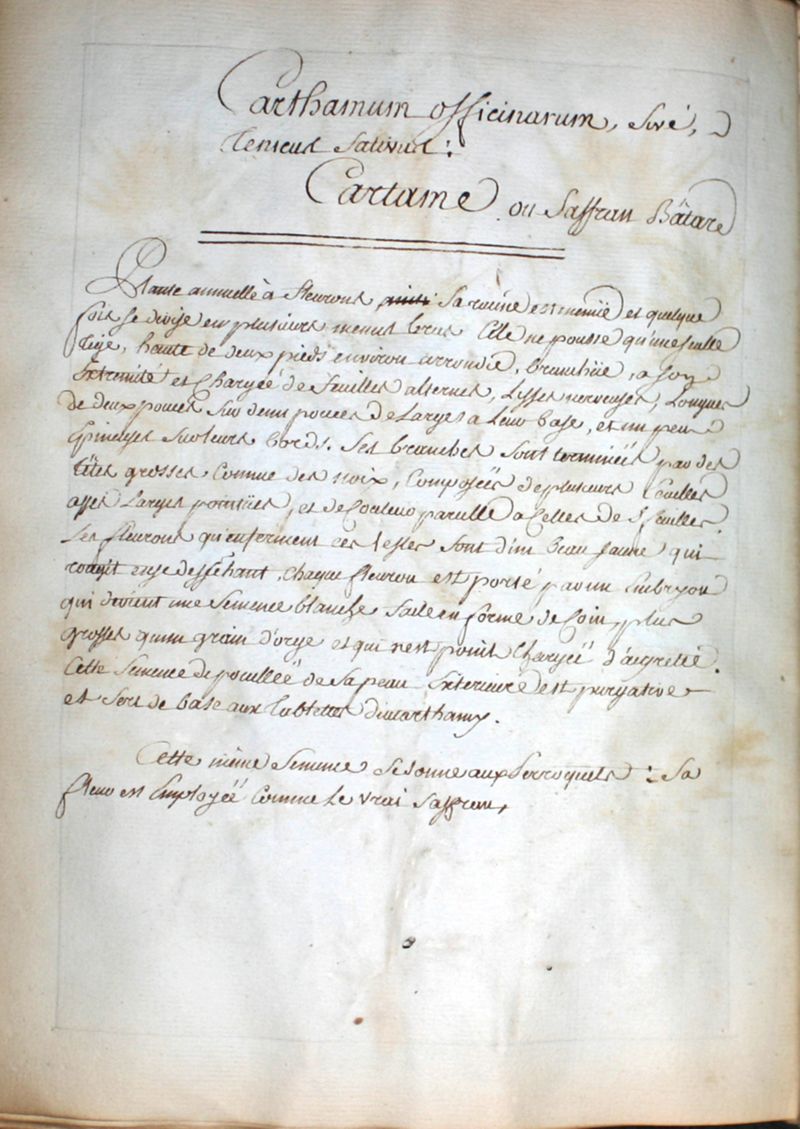 Carthamum officinarum, sivé,
Cnicus Sativus:
Cartame ou Saffran Bâtard
Plante annuelle à fleurons sa racine est menuë et quelque
fois se divise en plusieurs menus bras Elle ne pousse qu'une seulle
tige, haute de deux pieds environ arrondie, branchüe, a son
Extremité et Chargéé de feuilles alternes, Lisses nerveuses, Longues
de deux pouces Sur demi pouces de Larges a leur base, et un peu
Epineuses sur leurs bords. Ses branches sont terminéés par des
têtes grosses Comme des noix, Composéés de plusieurs Ecailles
assés Larges pointües, et de Couleur pareille a Celles de S. feuilles.
Les fleurons qu'enferment ces testes sont d'un beau jaune qui
rougit en se desséhant, Chaque fleuron est porté par un Embryon
qui devient une Semence blanche en forme de Coin plus
grosses qu'un grain d'orge et qui n'est point Chargéé d'aigrette.
Cette Semence depouilléé de sa peau Exterieure est purgative
et sert de base aux tablettes
Cette même Semence se donne aux Perroquets: Sa
fleur est Employéé Comme Le vrai Saffran,